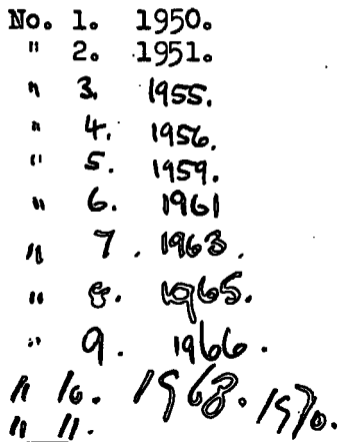 No. 1. 1950.
" 2. 1951.
" 3. 1955.
" 4. 1956.
" 5. 1959.
" 6. 1961
" 7. 1963.
" 8. 1965.
" 9. 1966.
" 10. 1968.
" 11. 1970.